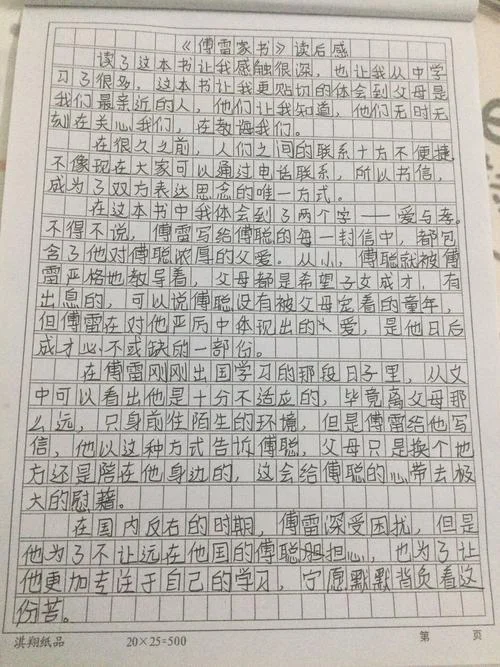 《傅雷家书》读后感
读了这本书让我感触很深，也让我从中学
习了很多，这本书让我更贴切的体会到父母是
我们最亲近的人，他们让我知道，他们无时无
刻在关心我们，在教诲我们。
在很久之前，人们之间的联系十方不便捷，
不像现在大家可以通过电话联系，所以书信，
成为了双方表达思念的唯一方式。
在这本书中我体会到了两个字——爱与孝。
不得不说，傅雷写给傅聪的每一封信中，都包
含了他对傅聪浓厚的父爱。从小，傅聪就被傅
雷严格地教导着，父母都是希望子女成才，有
出息的，可以说傅聪没有被父母宠着的童年，
但傅雷在对他严厉中体现出的爱，是他日后
成才必不或缺的一部份。
在傅雷刚刚出国学习的那段日子里，从文
中可以看出他是十分不适应的，毕竟离父母那
么远，只身前往陌生的环境，但是傅雷给他写
信，他以这种方式告诉傅聪，父母只是换个地
方还是陪在他身边的，这会给傅聪的心带去极
大的慰藉。
在国内反右的时期，傅雷深受困扰，但是
他为了不让远在他国的傅聪担心，也为了让
他更加专注于自己的学习，宁愿默默背负着这
份苦。
淇翔纸品 20×25=500 第 页